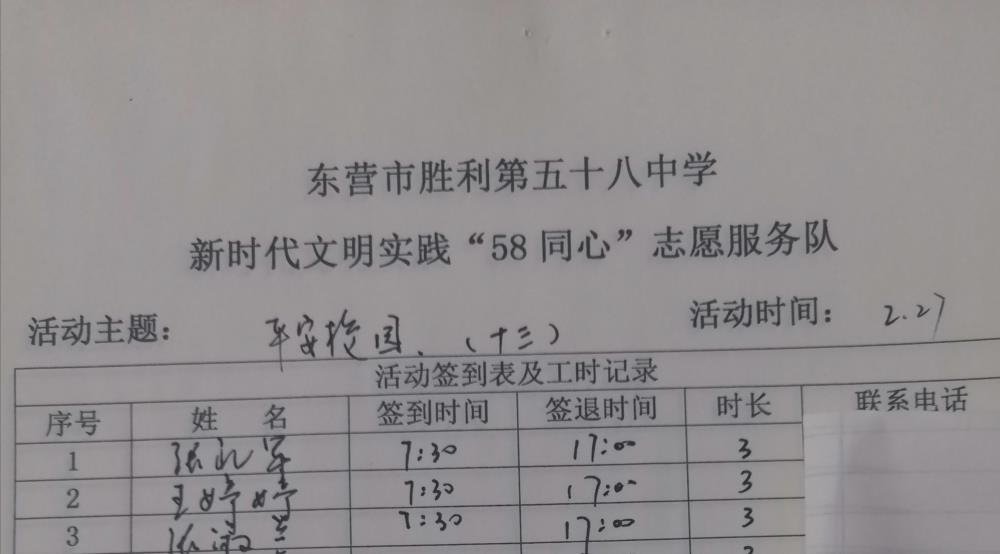 东营市胜利第五十八中学
新时代文明实践“58同心”志愿服务队
活动主题： 平安校园、（十三） 活动时间： 2.27
活动签到表及工时记录
序号 姓 名 签到时间 签退时间 时长 联系电话
1 张 军 7:30 17:00 3
2 王婷婷 7:30 17:00 3
3 张 兰 7:30 17:00 3